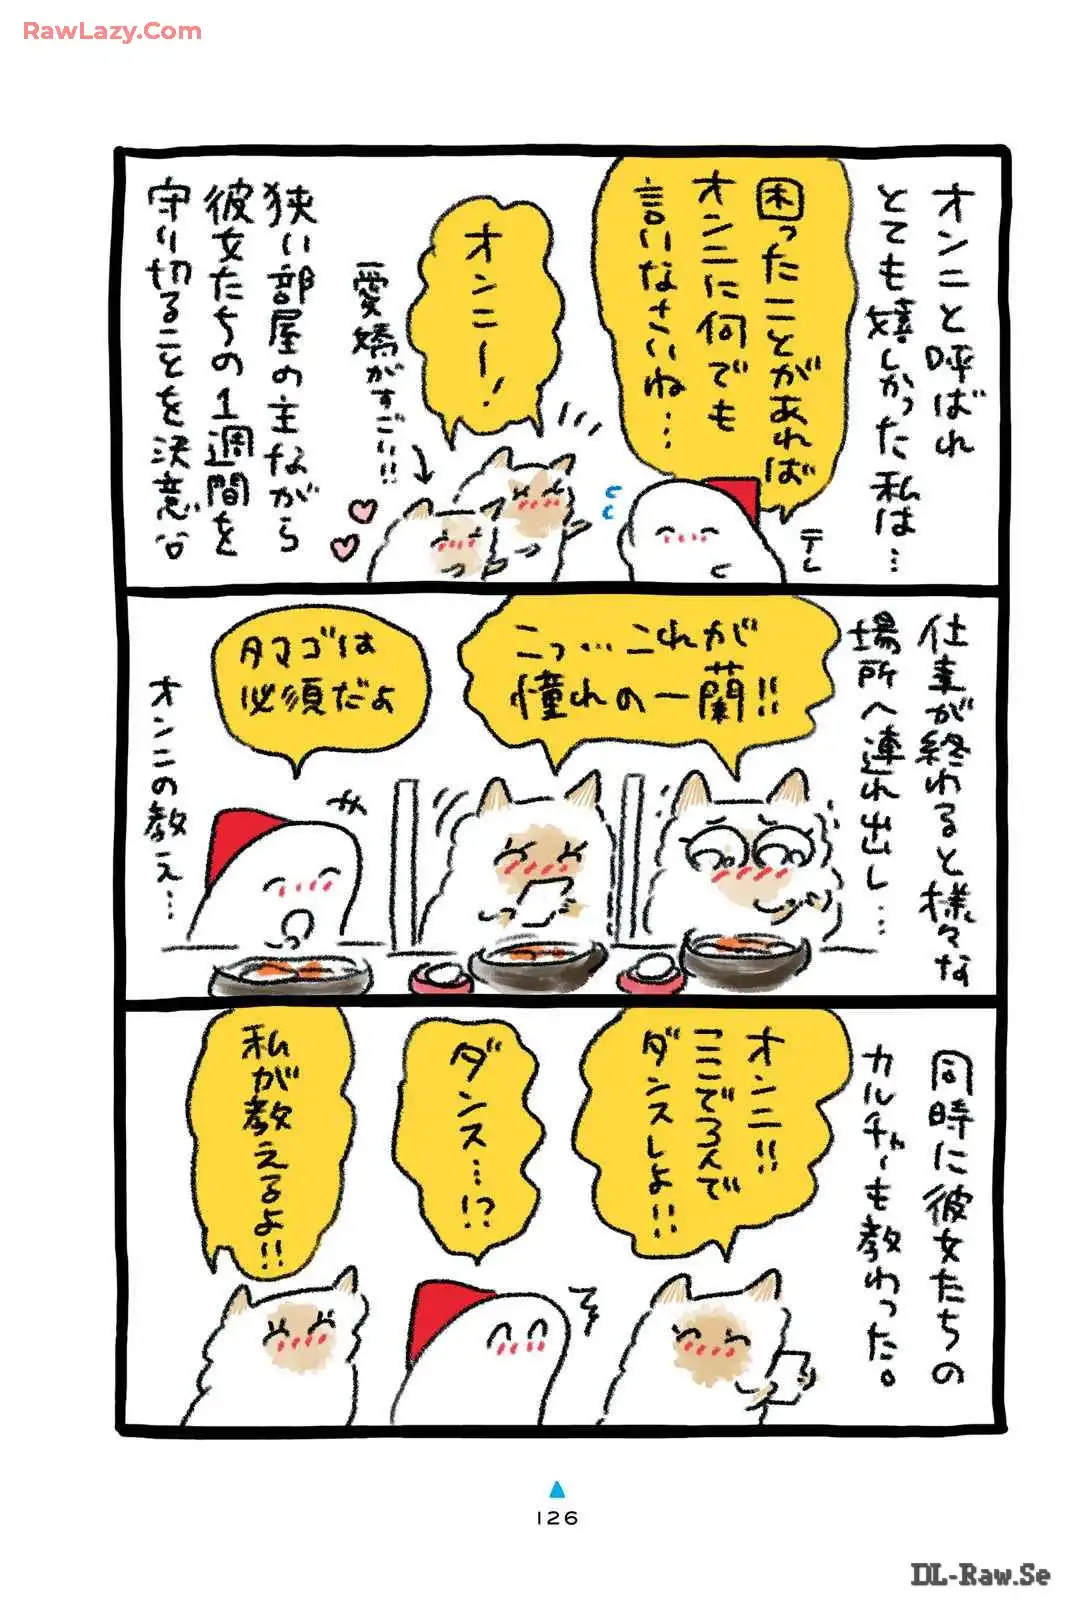 RawLazy.Com
オンニと呼ばれ
とても嬉しかった私は…
困ったことがあれば
オンニに何でも
言いなさいね…
テレ
オンニー!
愛嬌がすごい!!
狭い部屋の主ながら
彼女たちの1週間を
守り切ることを決意
仕事が終わると様々な
場所へ連れ出し…
こっ…これが
憧れの一蘭!!
タマゴは
必須だよ
オンニの教え…
同時に彼女たちの
カルチャーも教わった。
オンニ!!
ここで3人で
ダンスしよ!!
ダンス…!?
私が教えるよ!!
126
DL-Raw.Se